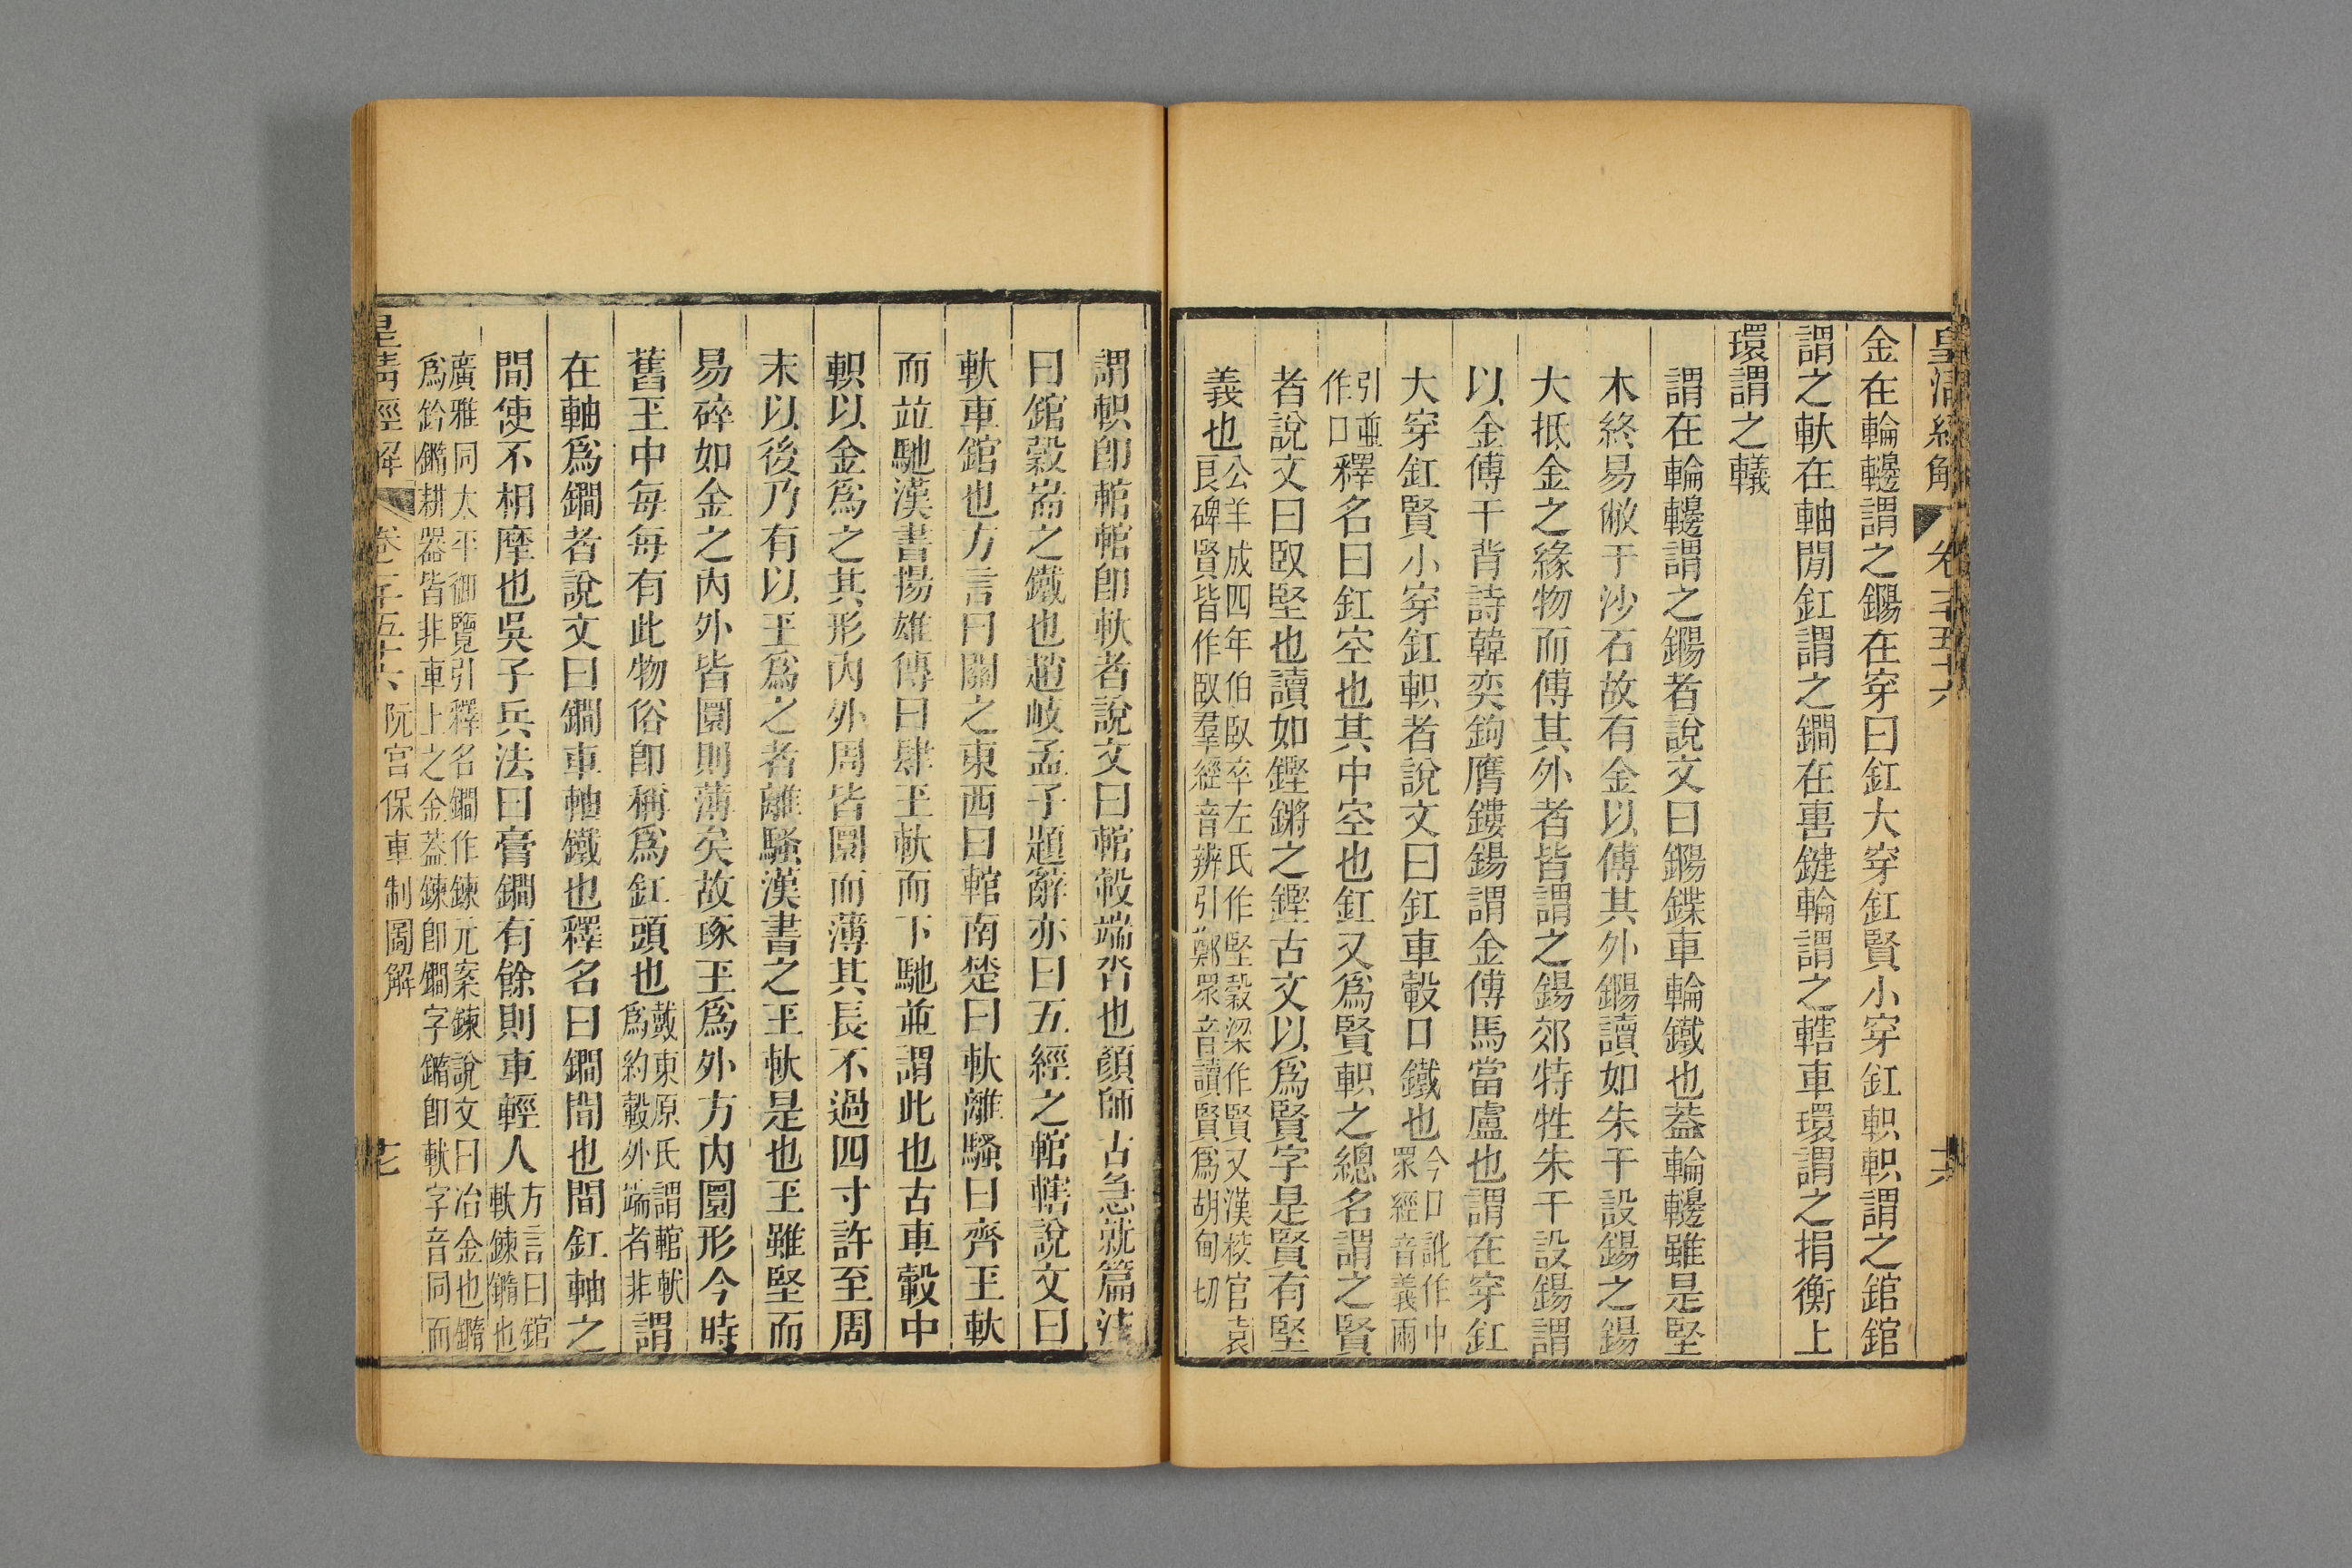 皇清經解 卷千五十六 六
金在輪轙謂之鍚在穿曰釭大穿釭賢小穿釭軹軹謂之錧錧
謂之軑在軸閒釭謂之鐧在軎鍵輪謂之轄車環謂之捐衡上
環謂之轙
謂在輪邊謂之鍚者說文曰鍚鍱車輪鐵也葢輪邊雖是堅
木終易敝于沙石故有金以傅其外鍚讀如朱干設鍚之鍚
大抵金之緣物而傅其外者皆謂之鍚郊特牲朱干設鍚謂
以金傅干背詩韓奕鉤膺鏤鍚謂金傅馬當盧也謂在穿釭
大穿釭賢小穿釭軹者說文曰釭車轂口鐵也今口訛作中眾經音義兩
引並作口釋名曰釭空也其中空也釭又爲賢軹之總名謂之賢
者說文曰臤堅也讀如鏗鏘之鏗古文以爲賢字是賢有堅
義也公羊成四年伯臤卒左氏作堅穀梁作賢又漢校官袁良碑賢皆作臤羣經音辨引鄭眾音讀賢爲胡甸切
謂軹卽輨輨卽軑者說文曰輨轂端沓也顏師古急就篇注
曰錧轂耑之鐵也趙岐孟子題辭亦曰五經之輨轄說文曰
軑車錧也方言曰關之東西曰輨南楚曰軑離騷曰齊玉軑
而竝馳漢書揚雄傳曰肆玉軑而下馳並謂此也古車轂中
軹以金爲之其形內外周皆圜而薄其長不過四寸許至周
末以後乃有以玉爲之者離騷漢書之玉軑是也玉雖堅而
易碎如金之內外皆圜則薄矣故琢玉爲外方內圜形今時
舊玉中每每有此物俗卽稱爲釭頭也戴東原氏謂輨軑爲約轂外端者非謂
在軸爲鐧者說文曰鐧車軸鐵也釋名曰鐧閒也閒釭軸之
閒使不相摩也吳子兵法曰膏鐧有餘則車輕人方言曰錧軑鍊鐯也
廣雅同太平御覽引釋名鐧作鍊元案鍊說文曰冶金也鐯
爲鈐鐯耕器皆非車上之金葢鍊卽鐧字鐯卽軑字音同而
皇清經解 卷千五十六 阮宮保車制圖解 七